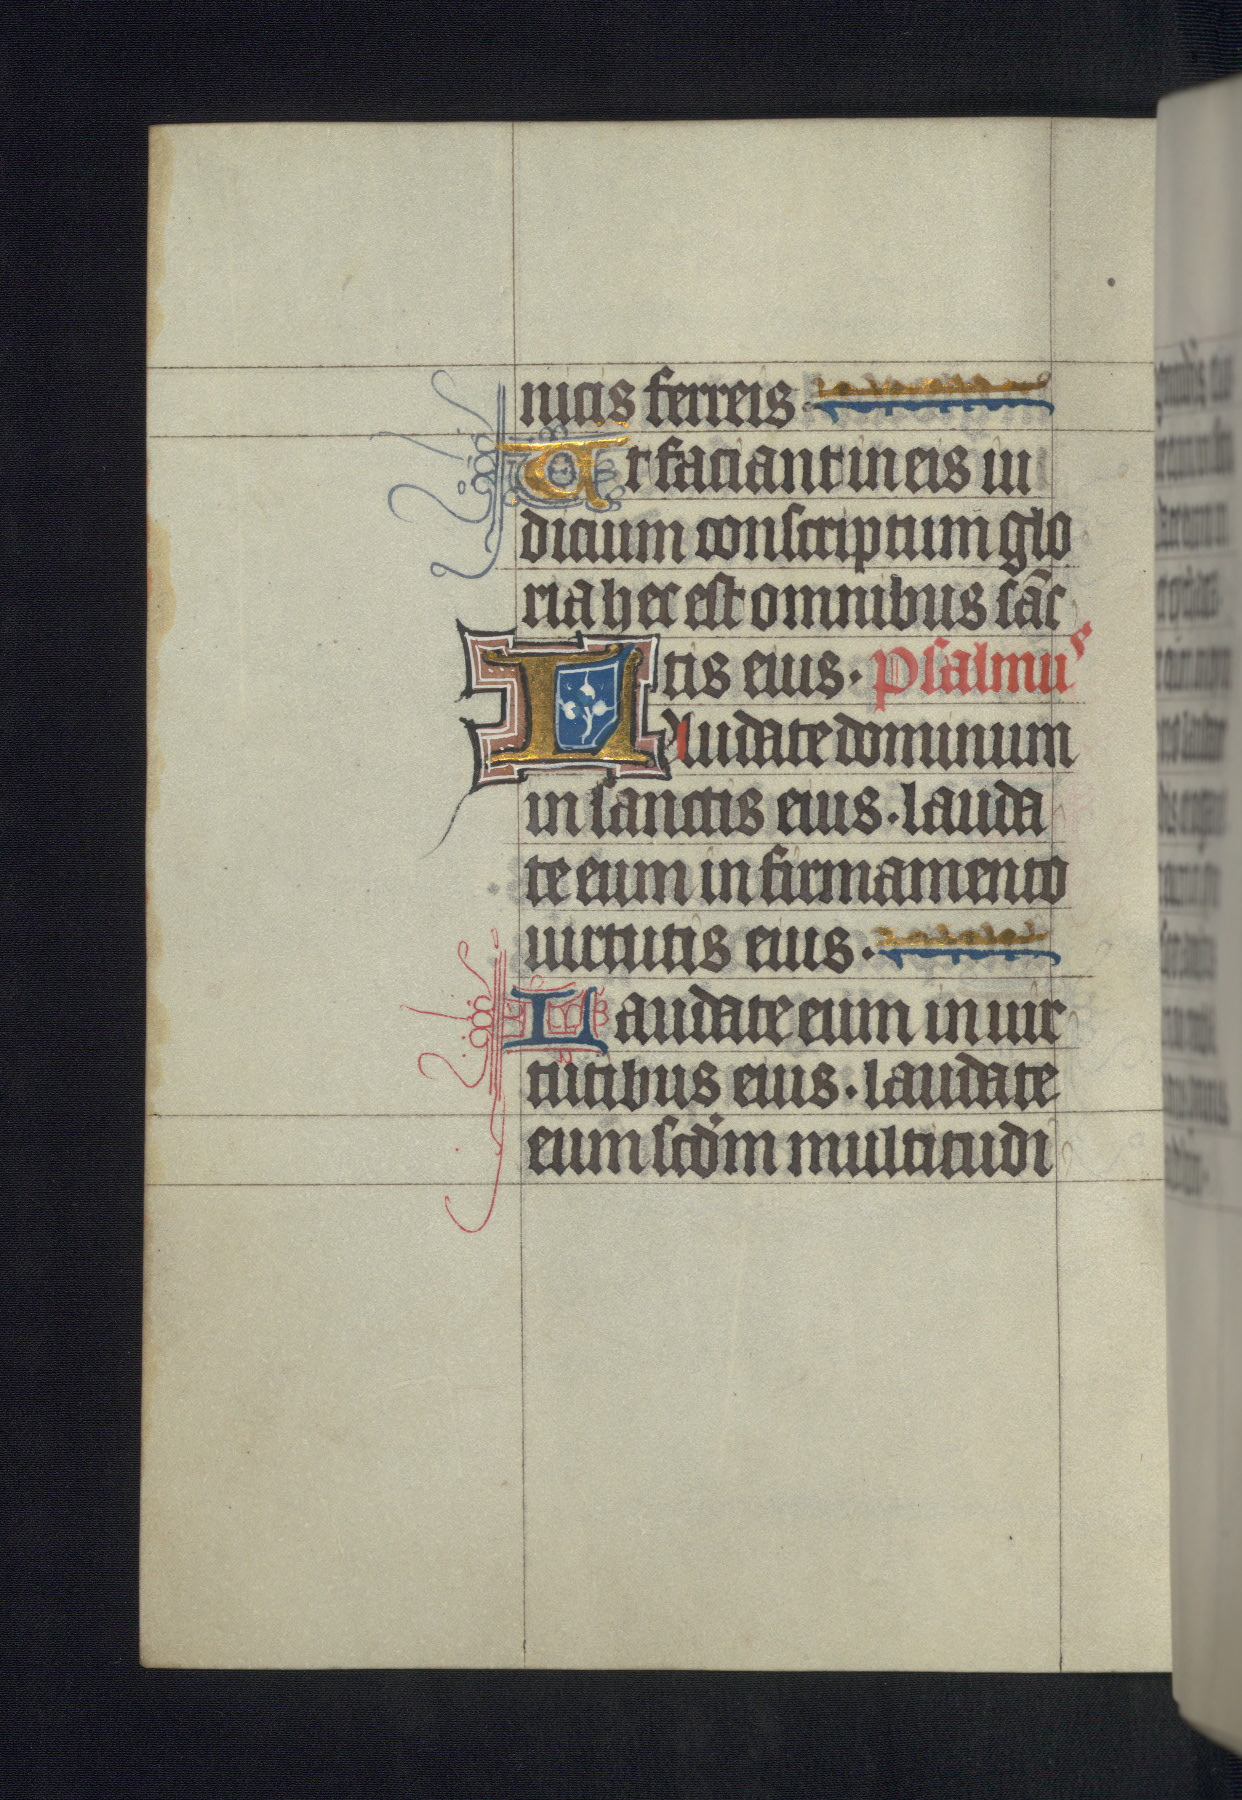 nicis ferreis.
Ut faciant in eis iu
dicium conscriptum glo
ria hec est omnibus sāc
tis eius. Psalmus
Laudate dominum
in sanctis eius. lauda
te eum in firmamento
uirtutis eius.
Laudate eum in uir
tutibus eius. laudate
eum scdm multitudi